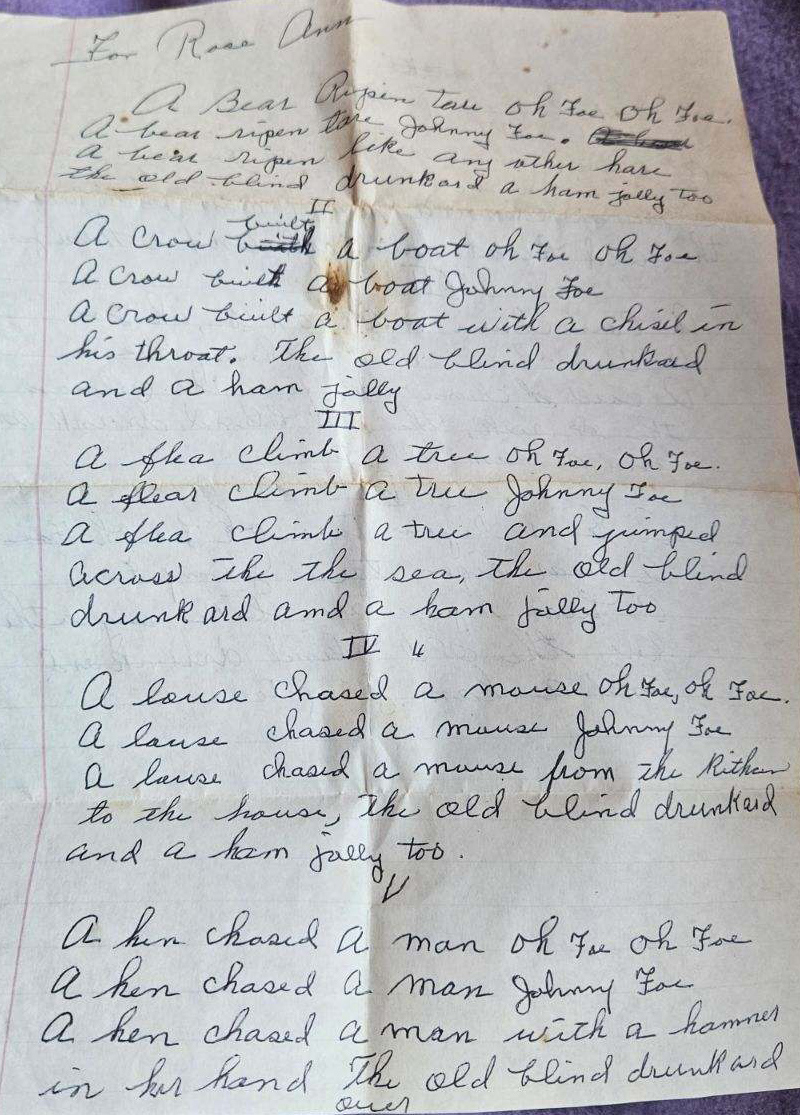 For Rose Ann
A Bear Ripen tare oh Foe oh Foe.
A bear ripen tare Johnny Foe.
A bear ripen like any other hare
the old blind drunkard a ham jolly too
II
built
A crow a boat oh Foe oh Foe
A crow built a boat Johnny Foe
A crow built a boat with a chisel in
his throat. The old blind drunkard
and a ham jolly
III
A flea climb a tree oh Foe, oh Foe.
A flear climb a tree Johnny Foe
A flea climb a tree and jumped
across the the sea, the old blind
drunkard and a ham jolly too
IV "
A louse chased a mouse oh Foe, oh Foe.
A louse chased a mouse Johnny Foe
A louse chased a mouse from the Kithen
to the house, the old blind drunkard
and a ham jolly too.
V
A hen chased a man oh Foe oh Foe
A hen chased a man Johnny Foe
A hen chased a man with a hammer
in her hand The old blind drunkard
over